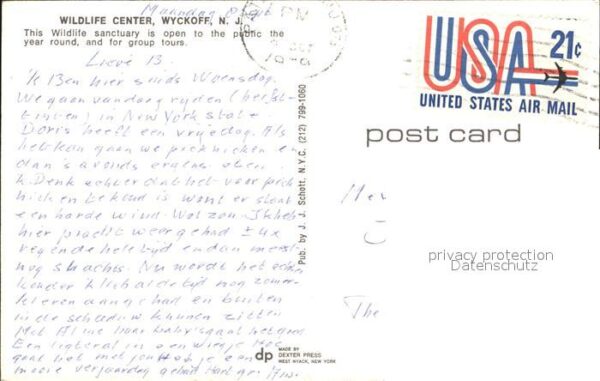 Maandag
WILDLIFE CENTER, WYCKOFF, N. J.
This Wildlife sanctuary is open to the public the
year round, and for group tours.
Lieve B.
'k Ben hier sinds Woensdag.
We gaan vandaag ryden (herfst-
tinten) in New York state.
Doris heeft een vrije dag. Als
het kan gaan we picknicken en
dan 's avonds ergens eten.
k. Denk echter dat het voor pick
nicken te koud is want er staat
een harde wind. Wat zon. Ik heb
hier pracht weer gehad 
regende hele tijd en dan meest
nog 's nachts. Nu wordt het echter
kouder. Ik had altijd nog zomer-
kleren aangehad en buiten
in de schaduw kunnen zitten
Met baby gaat het goed
Een in een wiegje Hoe
gaat het met jou Heb je een
mooie verjaardag gehad Hart. gr.
Pub. by J. J. Schott, N.Y.C. (212) 799-1060
USA 21c
UNITED STATES AIR MAIL
post card
privacy protection
Datenschutz
The
dp
MADE BY
DEXTER PRESS
WEST NYACK, NEW YORK